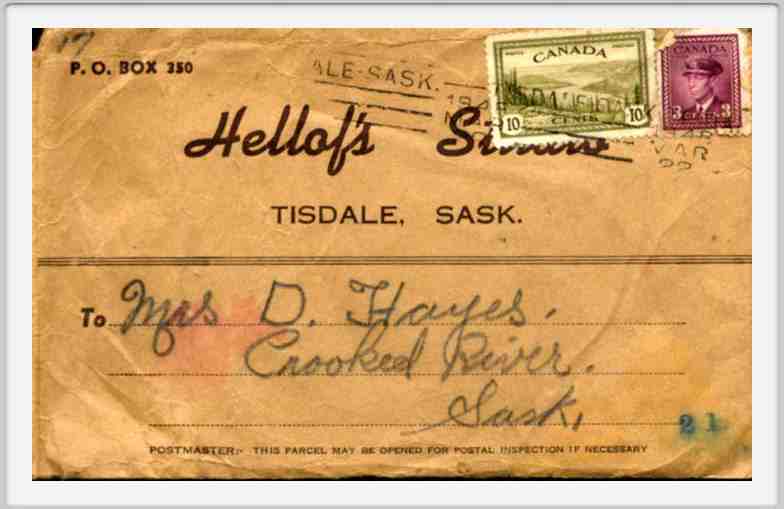 17
P. O. BOX 350
ALE-SASK.
CANADA
POSTES POSTAGE
10 CENTS 10
CANADA
3 CENTS 3
MAR
22
Hellof's Studio
TISDALE, SASK.
To Mrs D. Hayes.
Crooked River.
Sask,
21
POSTMASTER:- THIS PARCEL MAY BE OPENED FOR POSTAL INSPECTION IF NECESSARY